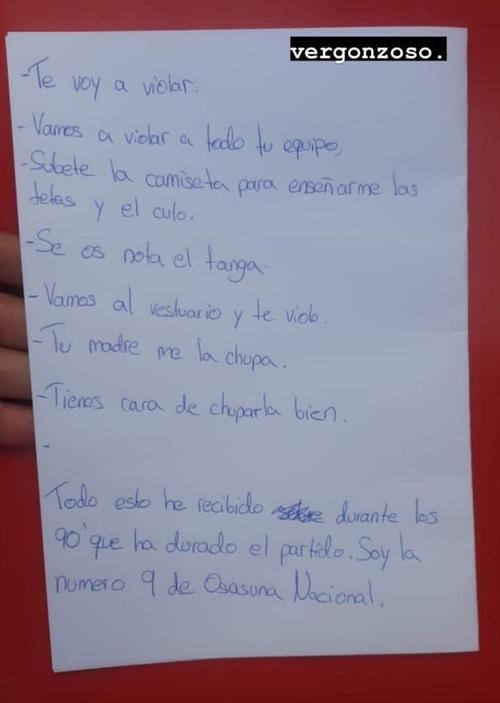 vergonzoso.
-Te voy a violar.
-Vamos a violar a todo tu equipo,
-Subete la camiseta para enseñarme las
tetas y el culo.
-Se os nota el tanga.
-Vamos al vestuario y te violo.
-Tu madre me la chupa.
-Tienes cara de chuparla bien.
-
Todo esto he recibido durante los
90' que ha durado el partido. Soy la
numero 9 de Osasuna Nacional.